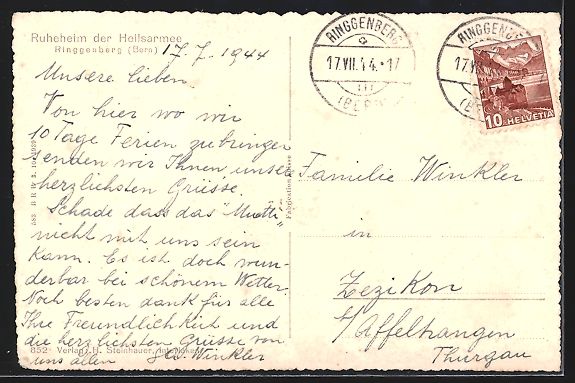 Ruheheim der Heilsarmee
Ringgenberg (Bern)
17.7.1944
Unsere lieben
Von hier wo wir
10 Tage Ferien zubringen
senden wir Ihnen, unsere
herzlichsten Grüsse.
Schade dass das "Muetti"
nicht mit uns sein
kann. Es ist doch wun-
derbar bei schönem Wetter.
Noch besten dank für alle
Ihre Freundlichkeit und
die herzlichsten Grüsse von
uns allen Winkler
852 Verlag: H. Steinhauer, Interlaken
Fabrication Suisse
RINGGENBERG
17.VII.44.-17
(BERN)
RINGGENBERG
17.VII
(BERN)
10 HELVETIA
Familie Winkler
in
Zezikon
b/Affeltrangen
Thurgau